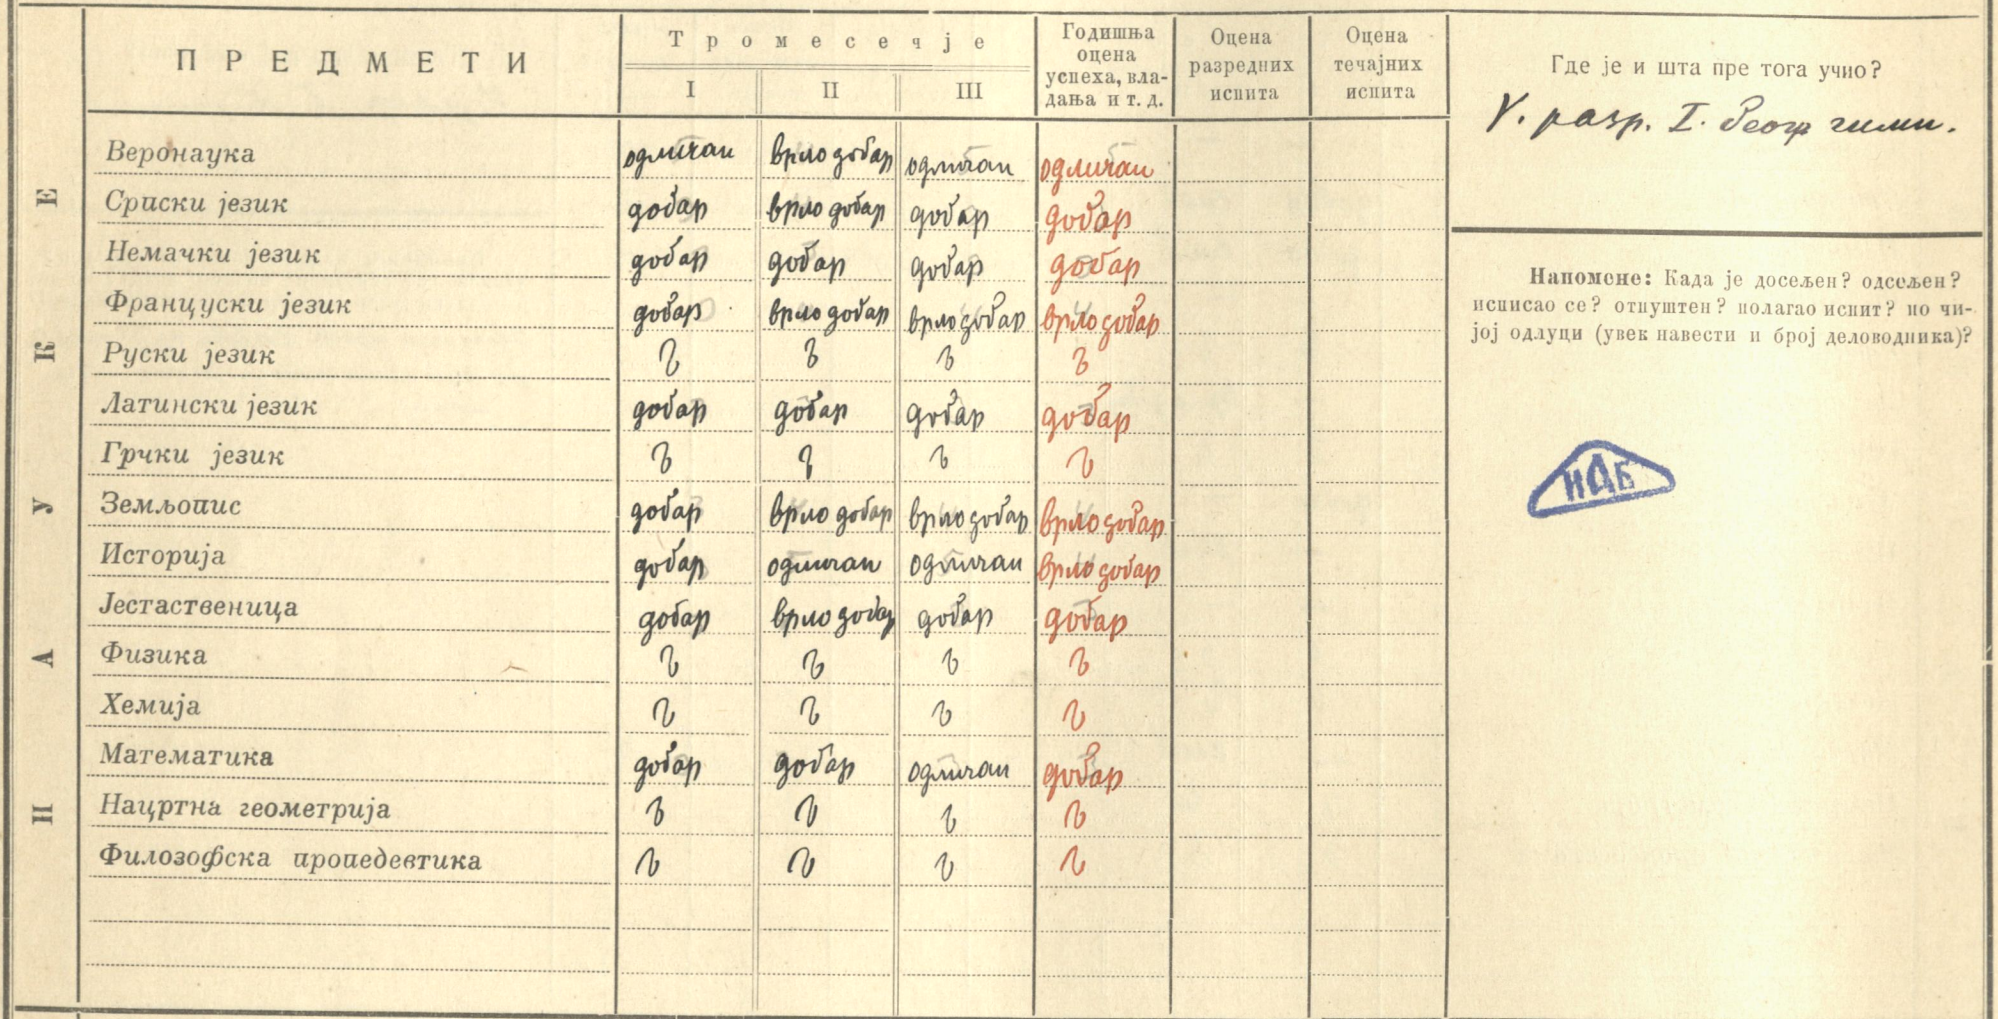 ПРЕДМЕТИ
Тромесечје
I II III
Годишња оцена успеха, вла-дања и т. д.
Оцена разредних испита
Оцена течајних испита
НАУКЕ
Веронаука одличан врло добар одличан одличан
Српски језик добар врло добар добар добар
Немачки језик добар добар добар добар
Француски језик добар врло добар врло добар врло добар
Руски језик
Латински језик добар добар добар добар
Грчки језик
Земљопис добар врло добар врло добар врло добар
Историја добар одличан одличан врло добар
Јестаственица добар врло добар добар добар
Физика
Хемија
Математика добар добар одличан добар
Нацртна геометрија
Филозофска пропедевтика
Где је и шта пре тога учио?
V. разр. I. беогр гимн.
Напомене: Када је досељен? одсељен?
исписао се? отпуштен? полагао испит? по чи-
јој одлуци (увек навести и број деловодника)?
ИАБ